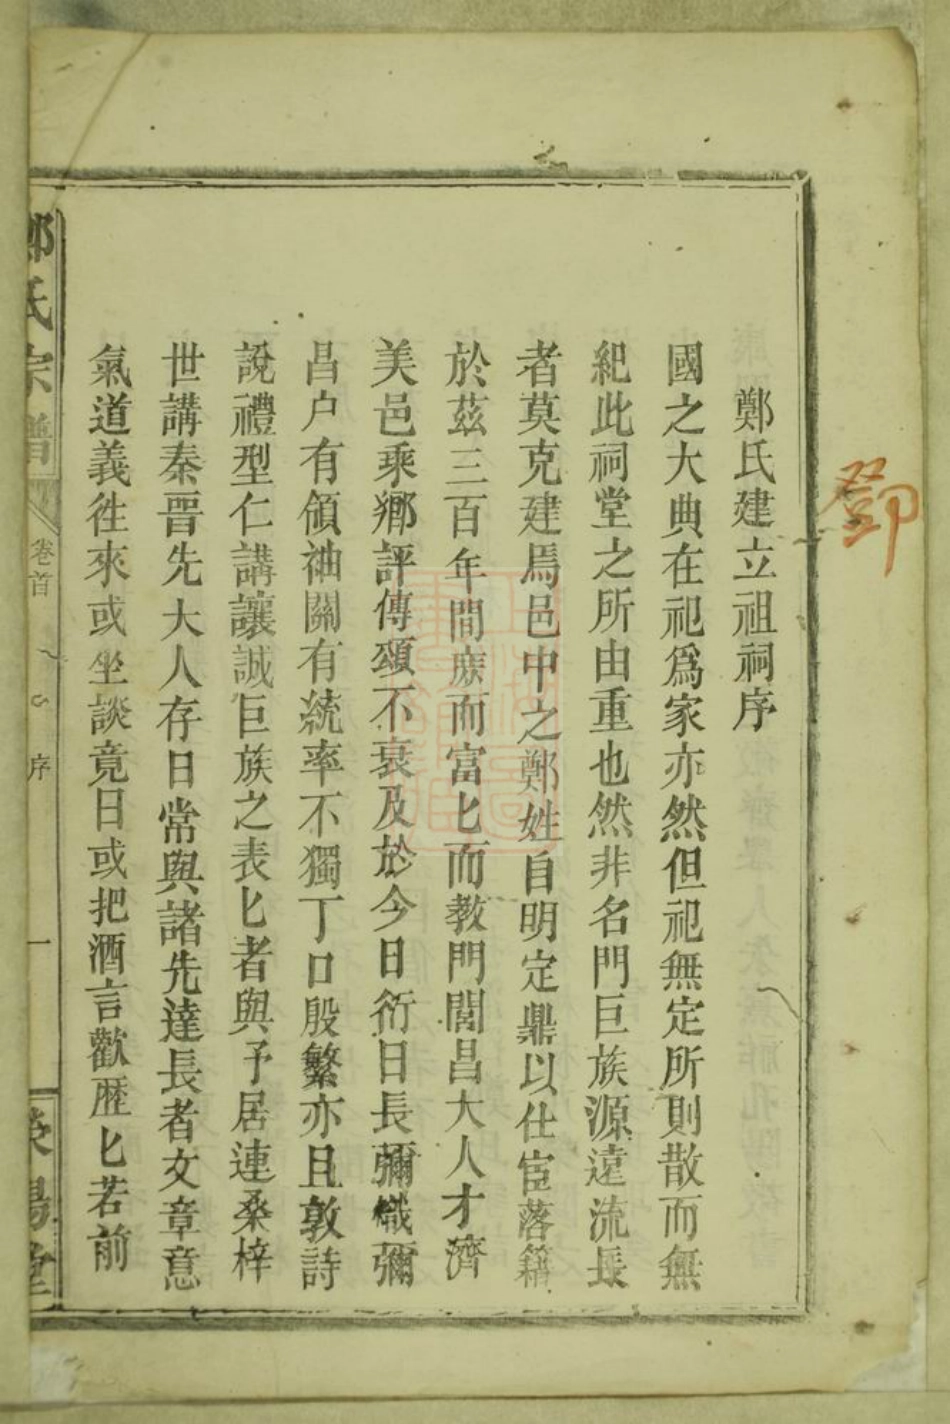 鄭氏建立祖祠序
國之大典在祀爲家亦然但祀無定所則散而無
紀此祠堂之所由重也然非名門巨族源遠流長
者莫克建焉邑中之鄭姓自明定鼎以仕宦落籍
於茲三百年間庶而富匕而教門閭昌大人才濟
美邑乘鄉評傳頌不衰及於今日衍日長彌熾彌
昌户有領袖闗有統率不獨丁口殷繁亦且敦詩
說禮型仁講讓誠巨族之表匕者與予居連桑梓
世講秦晋先大人存日常與諸先達長者文章意
氣道義徃來或坐談竟日或把酒言歡歷匕若前
鄭氏宗譜
卷首
序
一
滎陽堂
鄧